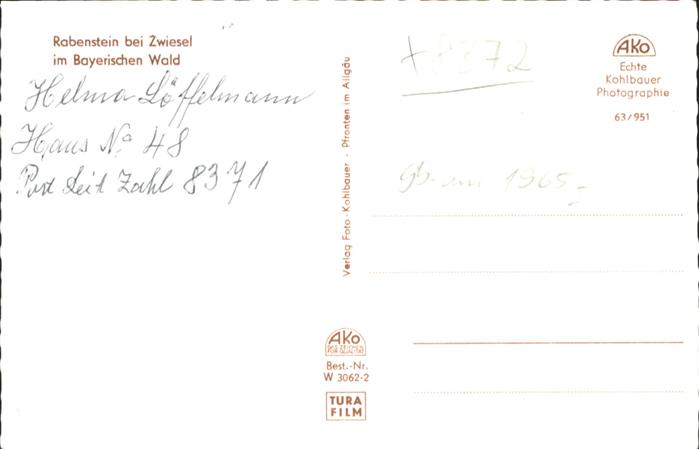 Rabenstein bei Zwiesel
im Bayerischen Wald
Helma Löffelmann
Haus No 48
Post Leit Zahl 8371
+8372
1965
AKO
Echte
Kohlbauer
Photographie
63/951
Verlag Foto-Kohlbauer - Pfronten im Allgäu
AKO
Best.-Nr.
W 3062-2
TURA
FILM